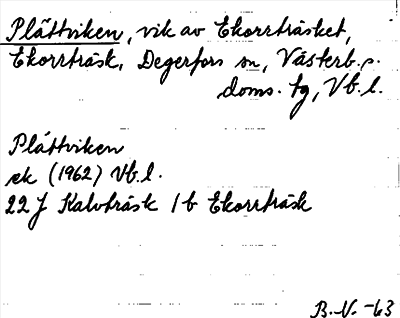 Plåttviken, vik av Ekorrträsket,
Ekorrträsk, Degerfors sn, Västerb. s.
doms. tg, Vb. l.
Plåttviken
ek (1962) Vb. l.
22 J Kalvträsk 1 b Ekorrträsk
B. N. -63